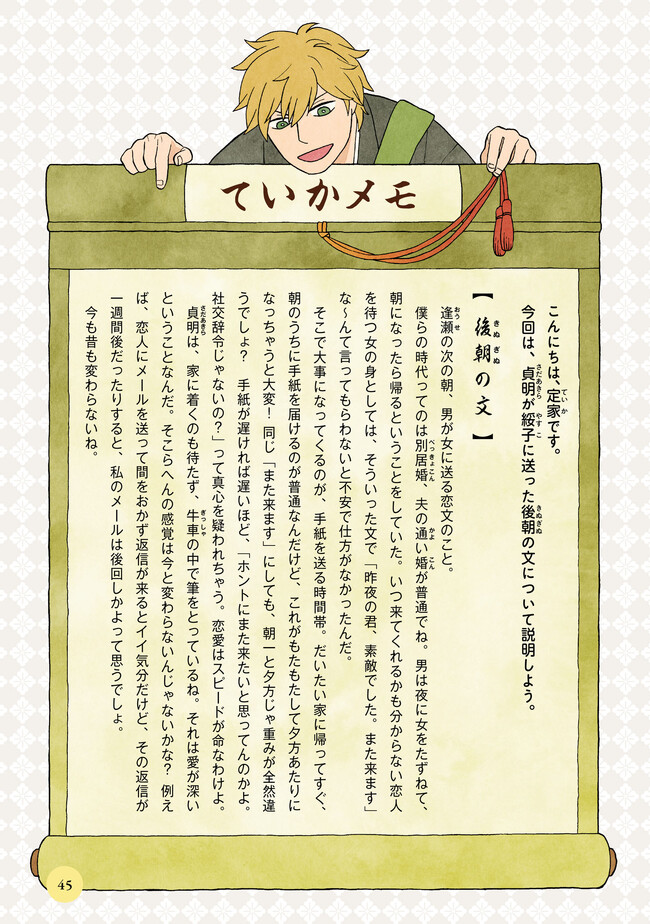 ていかメモ
こんにちは、定家です。
今回は、貞明が綏子に送った後朝の文について説明しよう。
【後朝の文】
逢瀬の次の朝、男が女に送る恋文のこと。
僕らの時代ってのは別居婚、夫の通い婚が普通でね。男は夜に女をたずねて、
朝になったら帰るということをしていた。いつ来てくれるかも分からない恋人
を待つ女の身としては、そういった文で「昨夜の君、素敵でした。また来ます」
な〜んて言ってもらわないと不安で仕方がなかったんだ。
そこで大事になってくるのが、手紙を送る時間帯。だいたい家に帰ってすぐ、
朝のうちに手紙を届けるのが普通なんだけど、これがもたもたして夕方あたりに
なっちゃうと大変！同じ「また来ます」にしても、朝一と夕方じゃ重みが全然違
うでしょ？　手紙が遅ければ遅いほど、「ホントにまた来たいと思ってんのかよ。
社交辞令じゃないの？」って真心を疑われちゃう。恋愛はスピードが命なわけよ。
貞明は、家に着くのも待たず、牛車の中で筆をとっているね。それは愛が深い
ということなんだ。そこらへんの感覚は今と変わらないんじゃないかな？　例え
ば、恋人にメールを送って間をおかず返信が来るとイイ気分だけど、その返信が
一週間後だったりすると、私のメールは後回しかよって思うでしょ。
今も昔も変わらないね。
45